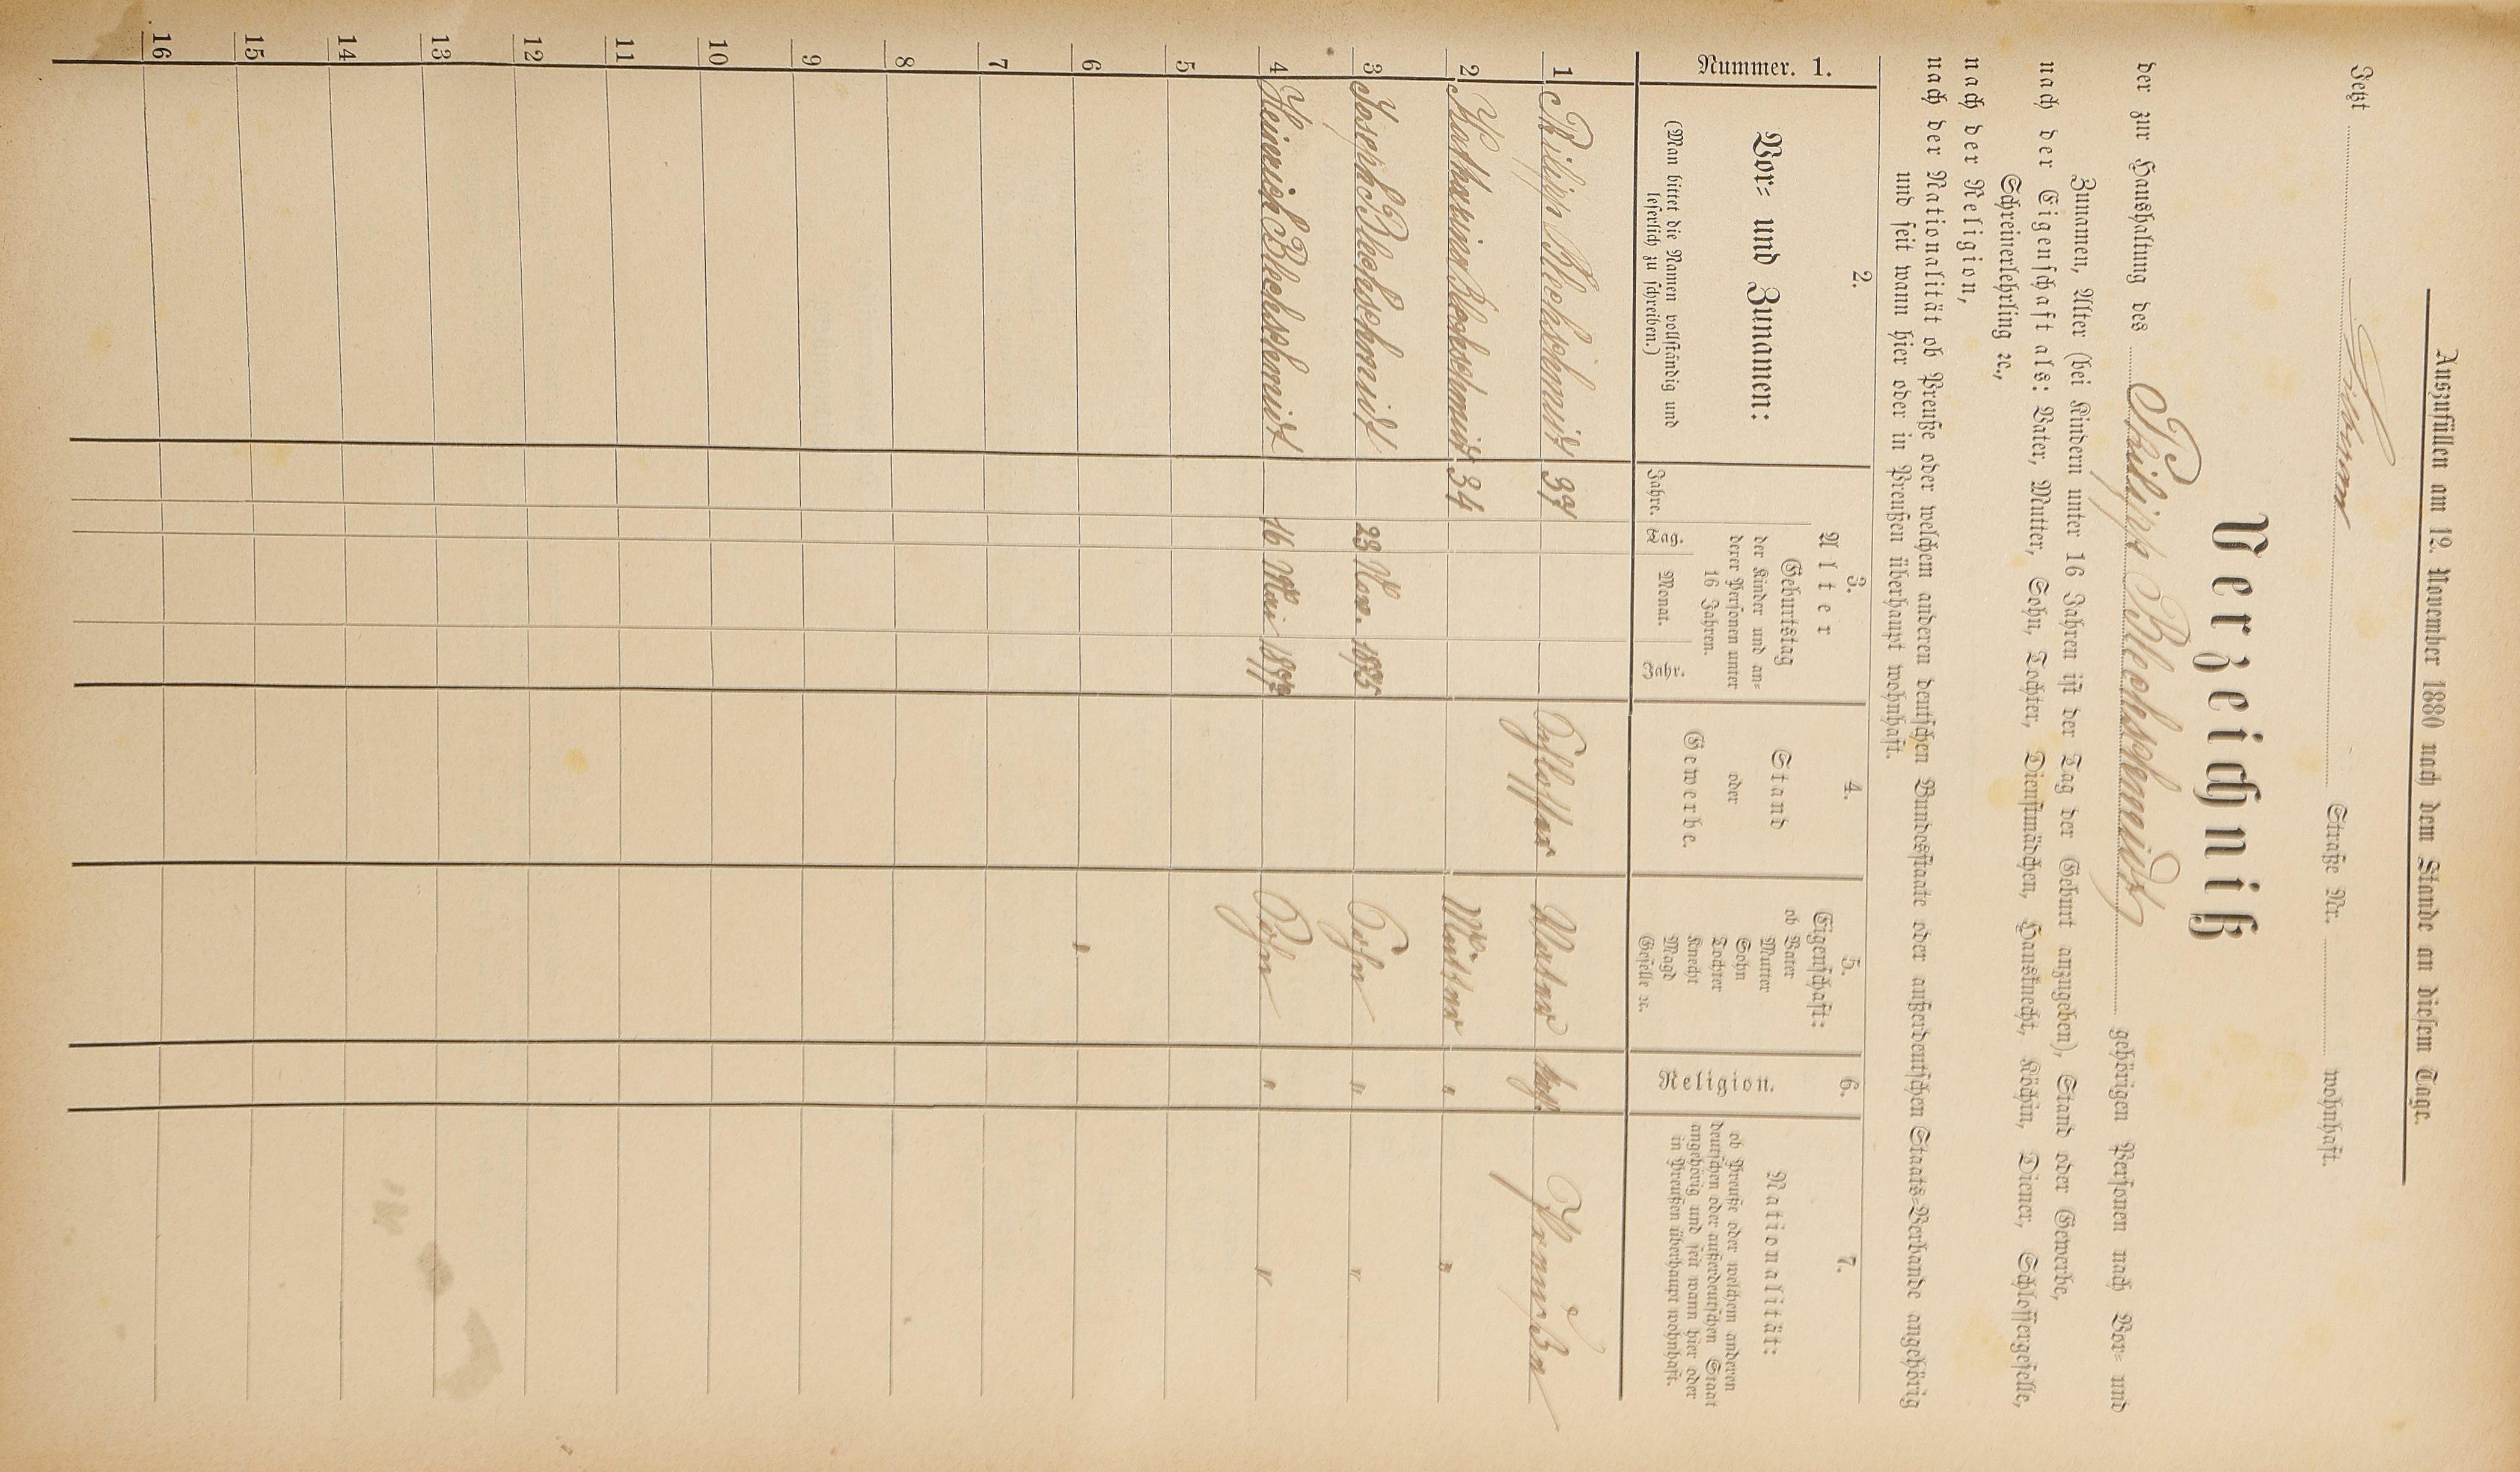 Auszufüllen am 12. November 1880 nach dem Stande an diesem Tage.
Jetzt Straße Nr. wohnhaft.
Verzeichniß
der zur Haushaltung des Philipp Blechschmidt gehörigen Personen nach Vor- und
Zunamen, Alter (bei Kindern unter 16 Jahren ist der Tag der Geburt anzugeben), Stand oder Gewerbe,
nach der Eigenschaft als: Vater, Mutter, Sohn, Tochter, Dienstmädchen, Hausknecht, Köchin, Diener, Schlossergeselle,
Schreinerlehrling ꝛc.,
nach der Religion,
nach der Nationalität ob Preuße oder welchem anderen deutschen Bundesstaate oder außerdeutschen Staats-Verbande angehörig
und seit wann hier oder in Preußen überhaupt wohnhaft.
Nummer. 1.
2.
Vor- und Zunamen:
(Man bittet die Namen vollständig und
leserlich zu schreiben.)
3.
Alter
Jahre.
Geburtstag
der Kinder und an-
derer Personen unter
16 Jahren.
Tag. Monat. Jahr.
4.
Stand
oder
Gewerbe.
5.
Eigenschaft:
ob Vater
Mutter
Sohn
Tochter
Knecht
Magd
Geselle ꝛc.
6.
Religion.
7.
Nationalität:
ob Preuße oder welchem anderen
deutschen oder außerdeutschen Staat
angehörig und seit wann hier oder
in Preußen überhaupt wohnhaft.
1 Philipp Blechschmidt 39 Schlosser Vater kath. Preuße
2 Katharina Blechschmidt 34 Mutter " "
3 Joseph Blechschmidt 23 Nov. 1875 Sohn " "
4 Heinrich Blechschmidt 16 Mai Sohn " "
5
6
7
8
9
10
11
12
13
14
15
16